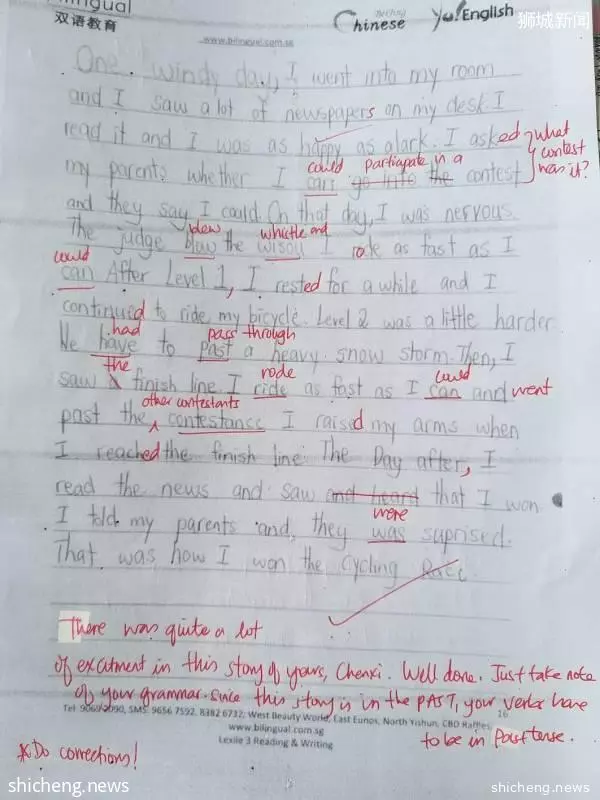 ingual
双语教育
Chinese
Yo! English
狮城新闻
www.bilingual.com.sg
One windy day, I went into my room
and I saw a lot of newspapers on my desk I
read it and I was as happy as a lark. I asked what
contest
was it?
could participate in a
my parents whether I can go into the contest
and they say I could. On that day, I was nervous.
blew whistle and
The judge bluw the wisou I rode as fast as I
could
can After Level 1, I rested for a while and I
continued to ride my bicycle. Level 2 was a little harder
had pass through
We have to past a heavy snow storm. Then, I
the rode could
saw a finish line. I ride as fast as I can and went
other contestants
past the contestance I raised my arms when
I reached the finish line. The Day after, I
read the news and saw and heard that I won
were
I told my parents and they was suprised.
That was how I won the Cycling Race.
There was quite a lot
of excitment in this story of yours, Chenxi. Well done. Just take note
of your grammar. Since this story is in the PAST, your verbs have
to be in Past tense.
Tel: 9069 2090, SMS: 9656 7592, 8382 6732, West Beauty World, East Eunos, North Yishun, CBD Raffles
16
www.bilingual.com.sg
Lexile 3 Reading & Writing
* Do corrections!
shicheng.news
shicheng.news